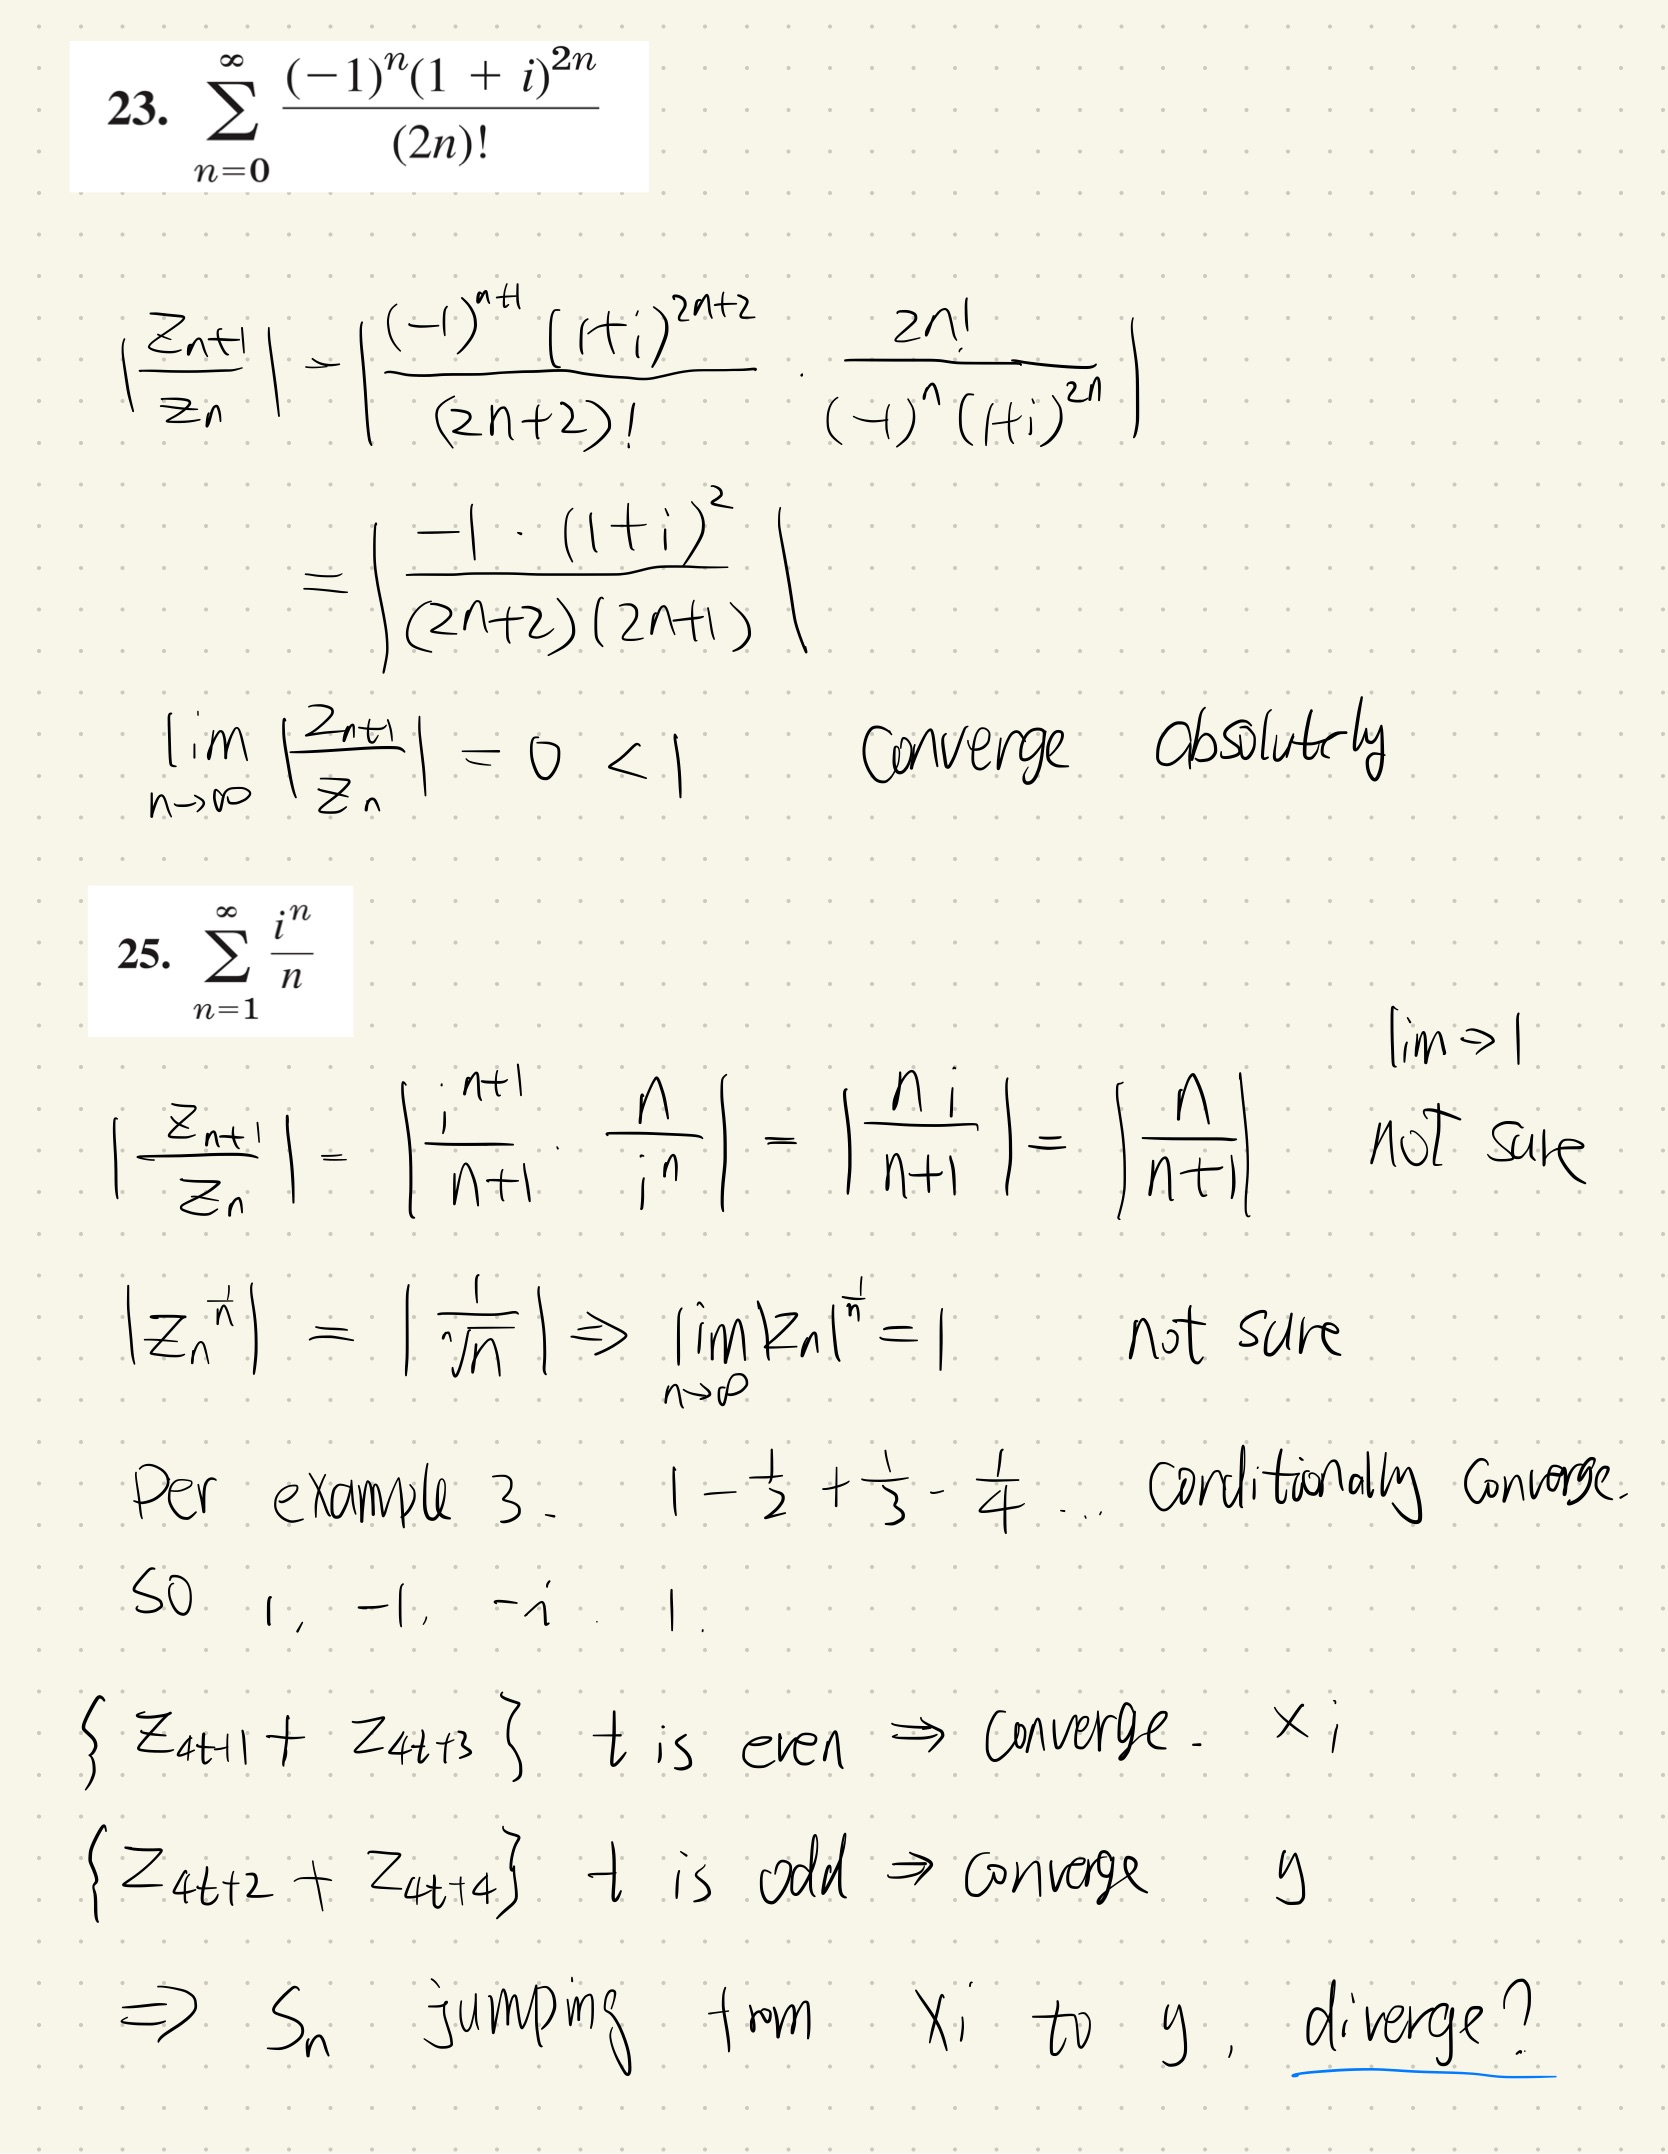 23. \sum_{n=0}^{\infty} \frac{(-1)^n(1 + i)^{2n}}{(2n)!}
|\frac{z_{n+1}}{z_n}| = |\frac{(-1)^{n+1} (1+i)^{2n+2}}{(2n+2)!} \cdot \frac{2n!}{(-1)^n (1+i)^{2n}}|
= |\frac{-1 \cdot (1+i)^2}{(2n+2)(2n+1)}|
\lim_{n→∞} |\frac{z_{n+1}}{z_n}| = 0 < 1 converge absolutely
25. \sum_{n=1}^{\infty} \frac{i^n}{n}
|\frac{z_{n+1}}{z_n}| = |\frac{i^{n+1}}{n+1} \cdot \frac{n}{i^n}| = |\frac{n i}{n+1}| = |\frac{n}{n+1}| lim ⇒ 1 not sure
|z_n^{\frac{1}{n}}| = |\frac{1}{\sqrt[n]{n}}| ⇒ \lim_{n→∞} |z_n|^{\frac{1}{n}} = 1 not sure
Per example 3. 1 - \frac{1}{2} + \frac{1}{3} - \frac{1}{4} ... conditionally converge.
so i, -1, -i. 1.
{ z_{4t+1} + z_{4t+3} } t is even ⇒ converge. xi
{ z_{4t+2} + z_{4t+4} } t is odd ⇒ converge y
⇒ S_n jumping from xi to y, diverge?